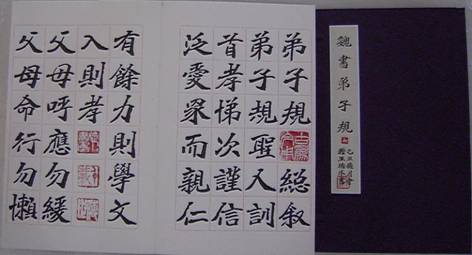 魏書弟子規
弟子規
總叙
弟子規聖人訓
首孝悌次謹信
泛愛眾而親仁
有餘力則學文
入則孝
父母呼應勿緩
父母命行勿懶